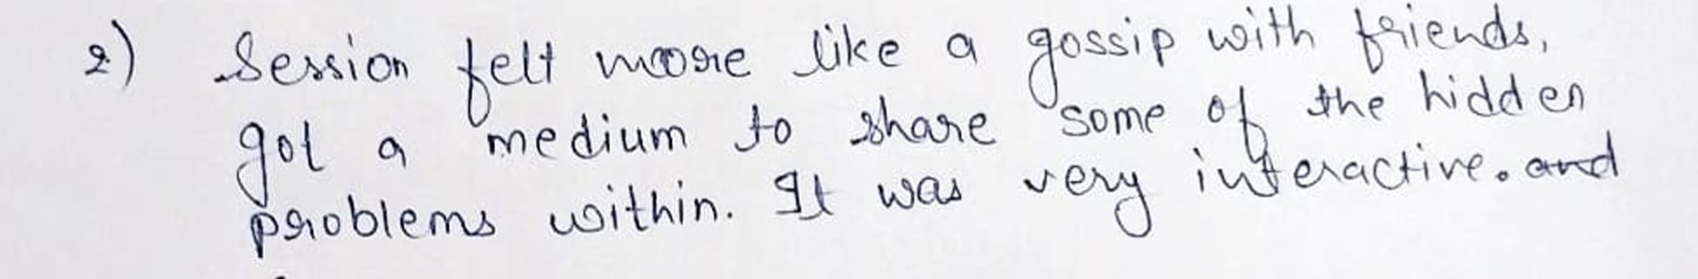 2) Session felt more like a gossip with friends,
got a medium to share some of the hidden
problems within. It was very interactive. and